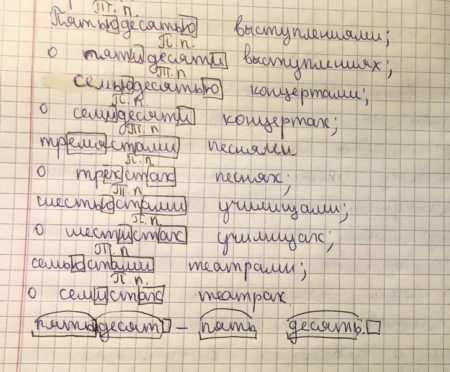 Т.п.
Пятьюдесятью выступлениями;
П.п.
о пятидесяти выступлениях;
Т.п.
семьюдесятью концертами;
П.п.
о семидесяти концертах;
Т.п.
тремястами песнями
П.п.
о трёхстах песнях;
Т.п.
шестьюстами училищами;
П.п.
о шестистах училищах;
Т.п.
семьюстами театрами;
П.п.
о семистах театрах
пятьдесят - пять десять.